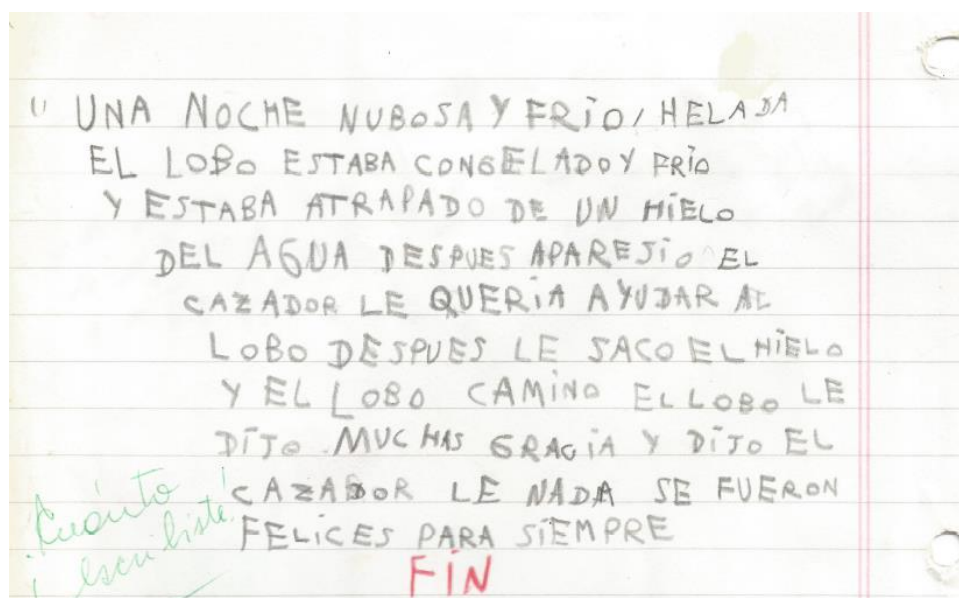 " UNA NOCHE NUBOSA Y FRIO, HELADA
EL LOBO ESTABA CONGELADO Y FRIO
Y ESTABA ATRAPADO DE UN HIELO
DEL AGUA DESPUES APARESIO EL
CAZADOR LE QUERIA AYUDAR AL
LOBO DESPUES LE SACO EL HIELO
Y EL LOBO CAMINO EL LOBO LE
DIJO MUCHAS GRACIA Y DIJO EL
CAZADOR LE NADA SE FUERON
FELICES PARA SIEMPRE
FIN
¡Cuánto
escribiste!